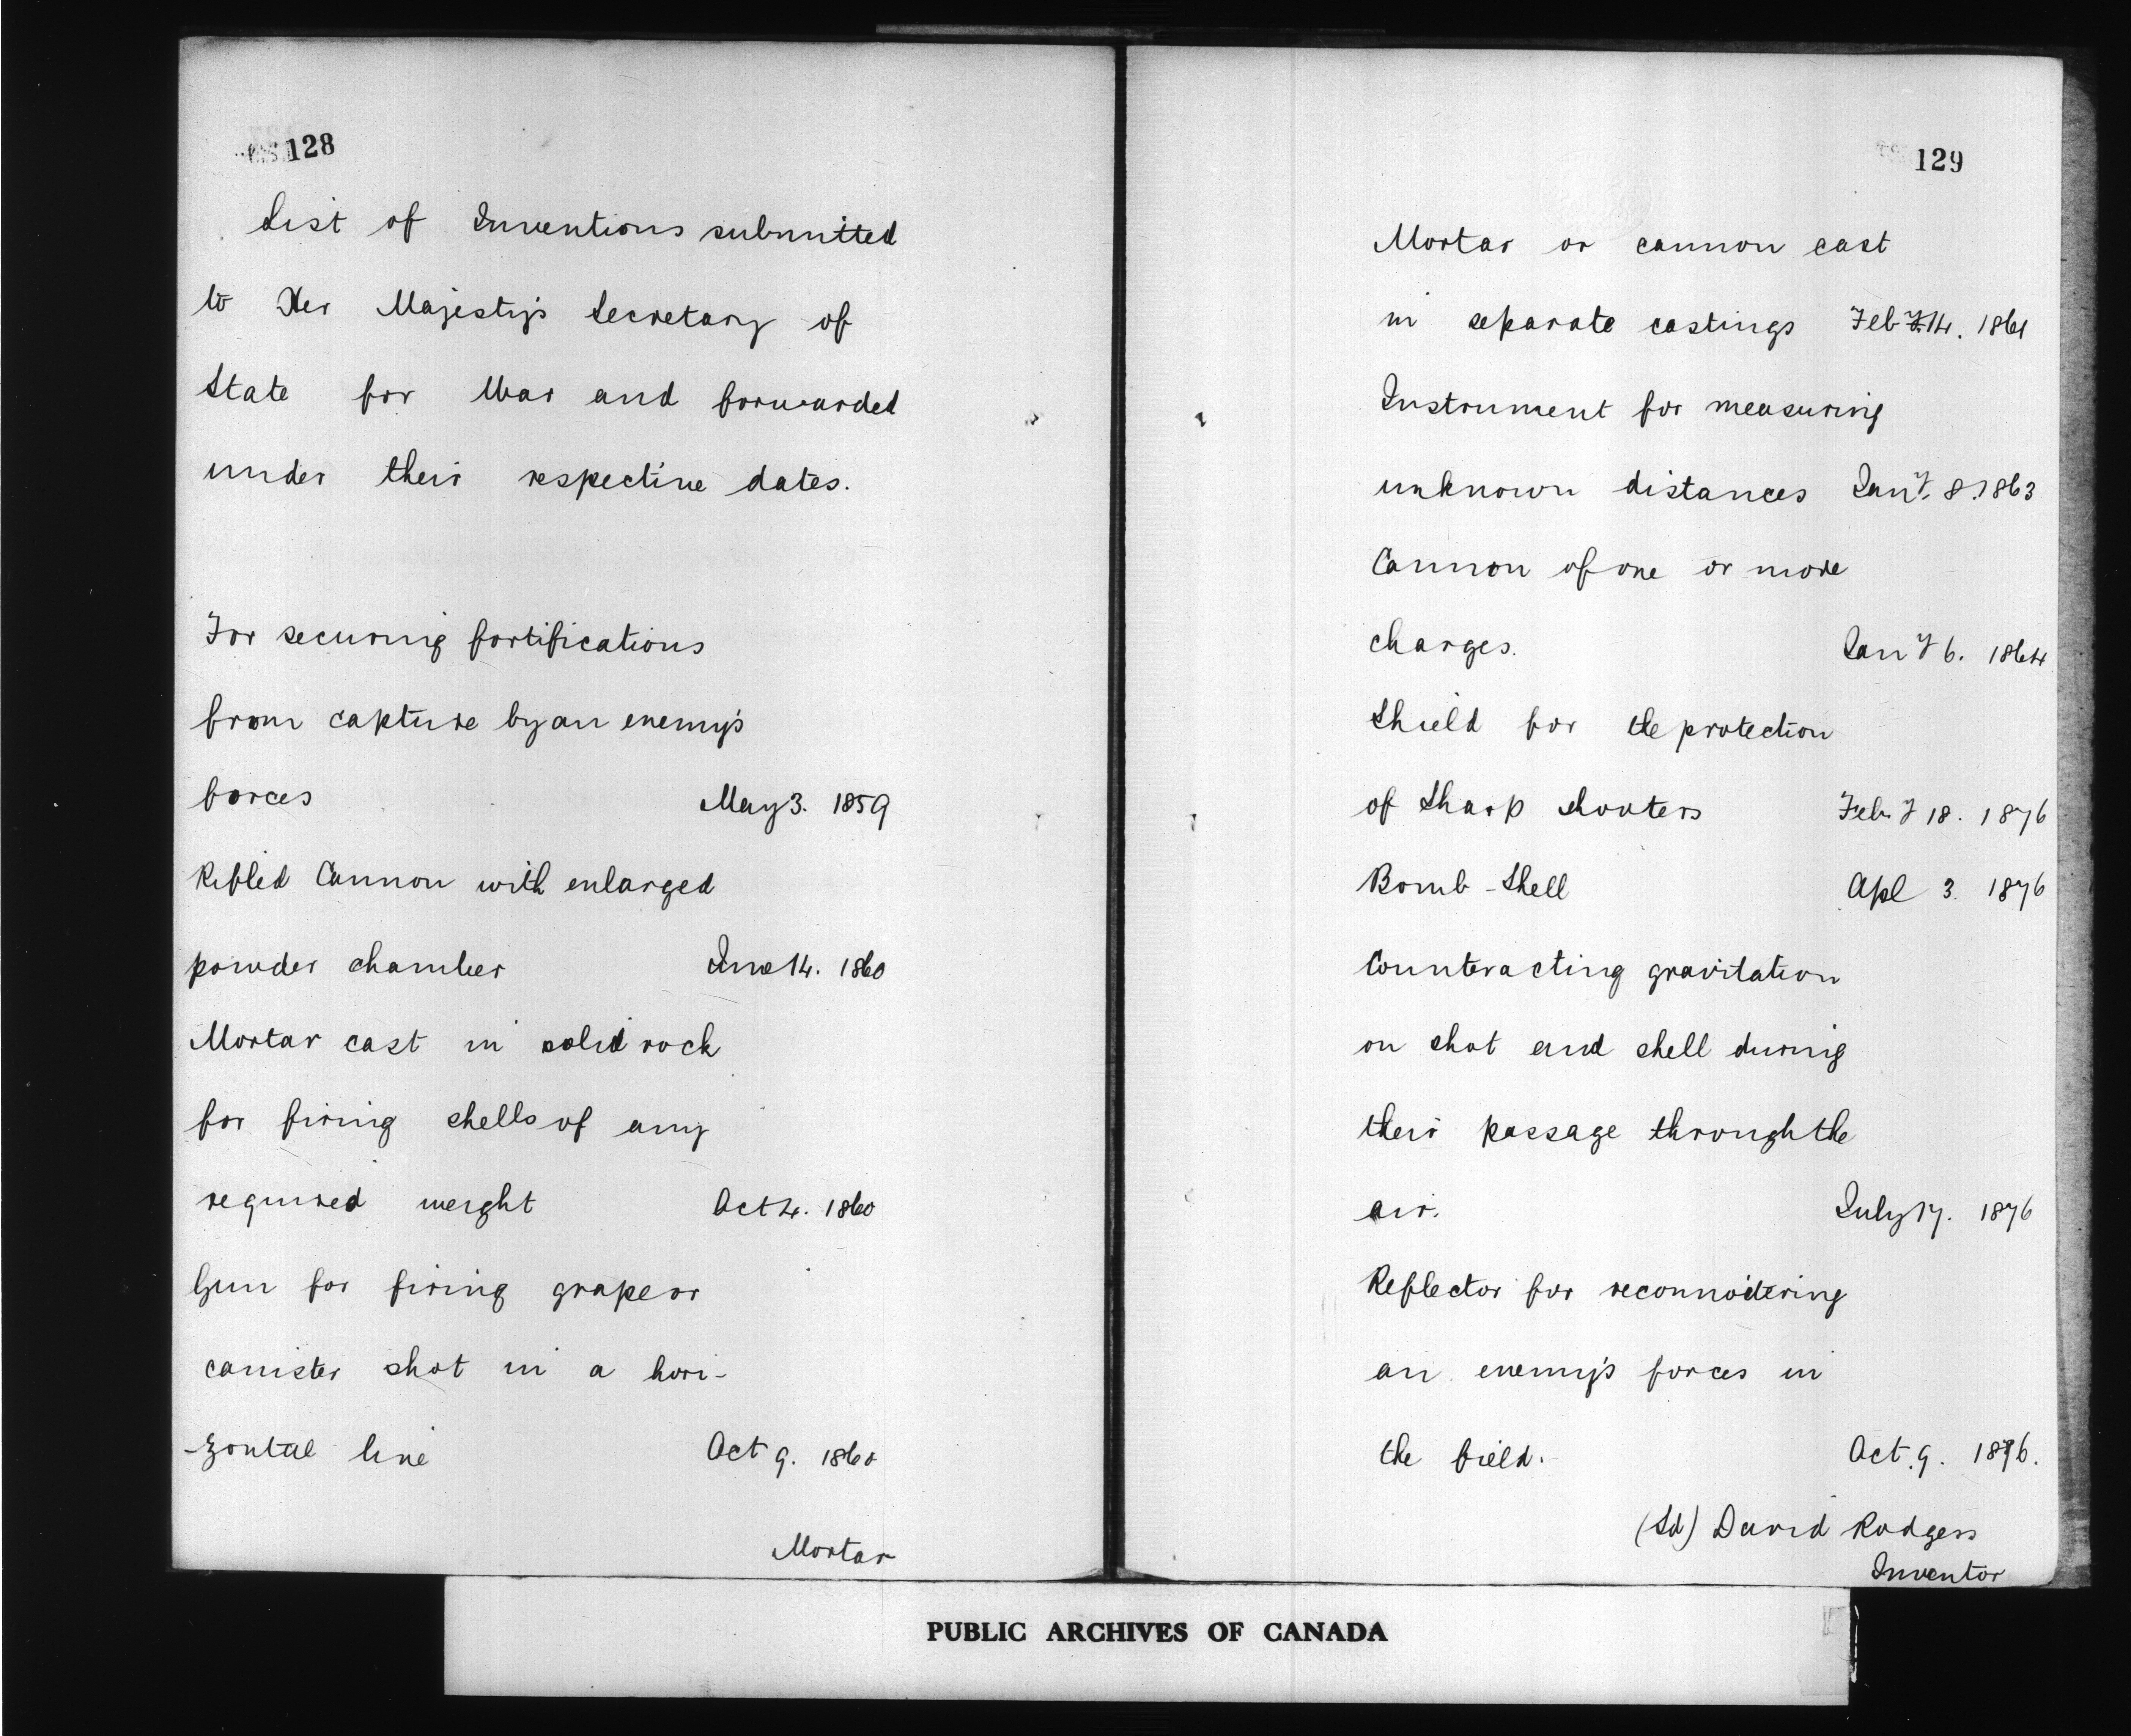 128
List of Inventions submitted
to Her Majesty's Secretary of
State for War and forwarded
under their respective dates.
For securing fortifications
from capture by an enemy's
forces May 3. 1859
Rifled Cannon with enlarged
powder chamber June 14. 1860
Mortar cast in solid rock
for firing shells of any
required weight Oct 4. 1860
Gun for firing grape or
canister shot in a hori-
-zontal line Oct 9. 1860
Mortar
129
Mortar or cannon cast
in separate castings Feby 14. 1861
Instrument for measuring
unknown distances Jany. 8. 1863
Cannon of one or more
charges. Jany 6. 1864
Shield for the protection
of Sharp shooters Feby 18. 1876
Bomb-Shell Apl 3. 1876
Counteracting gravitation
on shot and shell during
their passage through the
air. July 17. 1876
Reflector for reconnoitering
an enemy's forces in
the field. Oct. 9. 1876.
(Sd) David Rodgers
Inventor
PUBLIC ARCHIVES OF CANADA